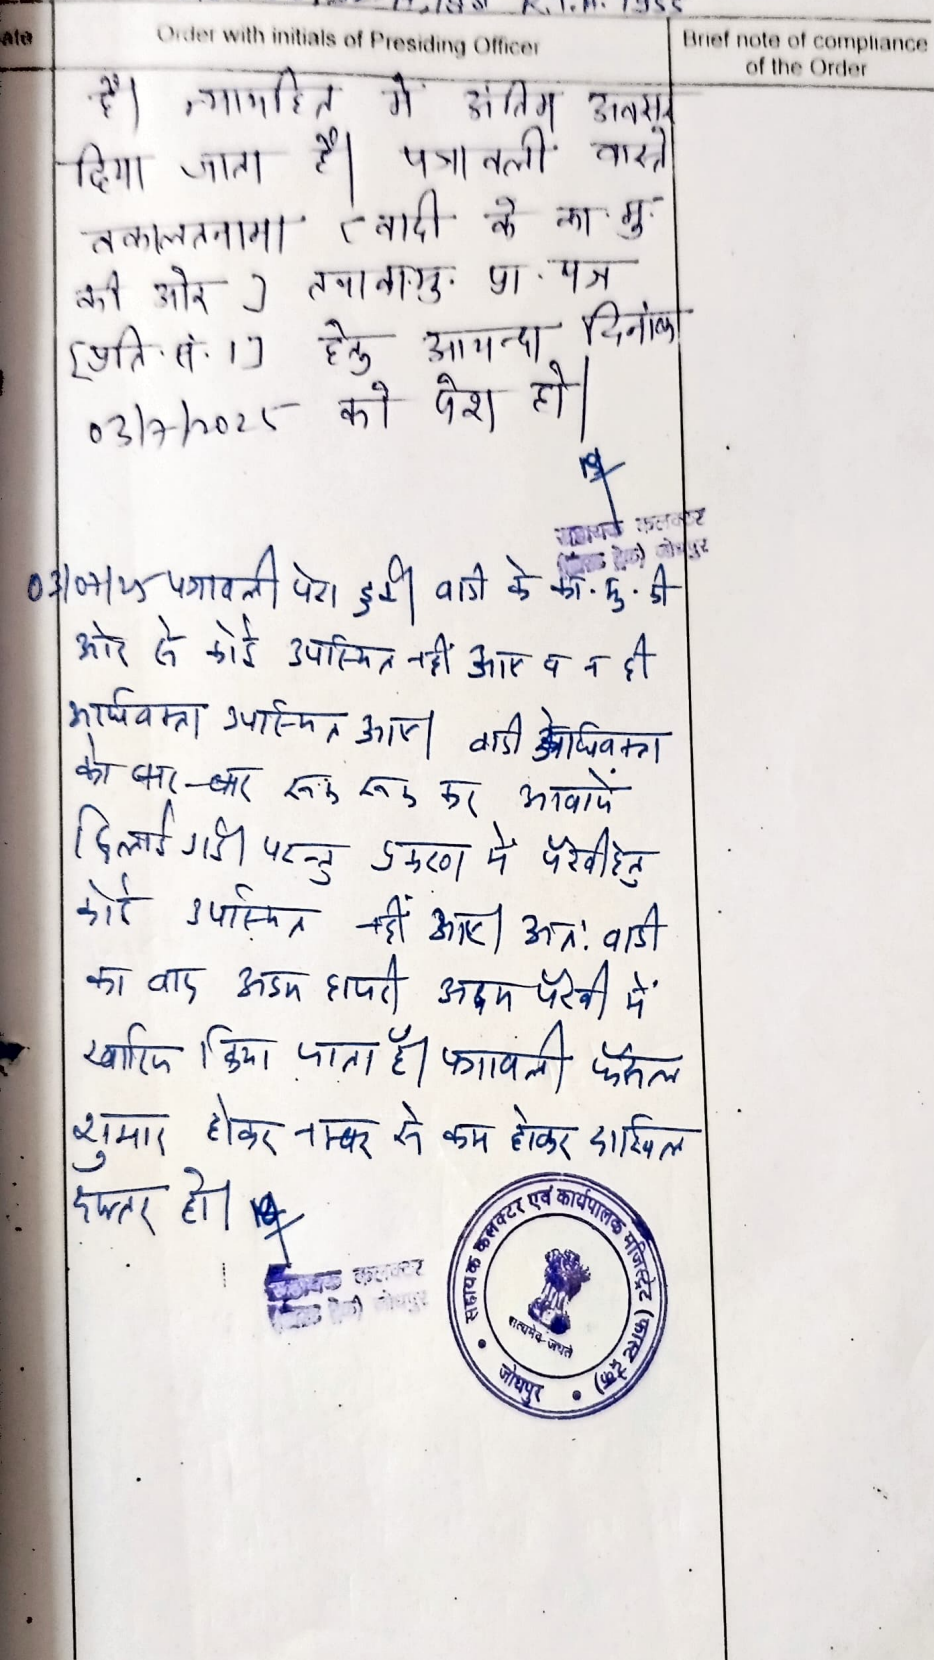 R.T.A. 1955
ate
Order with initials of Presiding Officer
Brief note of compliance
of the Order
है। न्यायहित में अंतिम अवसर
दिया जाता है। पत्रावली वास्ते
वकालतनामा (वादी के का.मु.
की ओर) तथा का.मु. प्रा. पत्र
[प्रति.सं. 1] हेतु आयन्दा दिनांक
03/7/2025 को पेश हो।
सहायक कलक्टर
जोधपुर
03/07/25 पत्रावली पेश हुई। वादी के का.मु. की
ओर से कोई उपस्थित नहीं आए व न ही
अधिवक्ता उपस्थित आए। वादी अधिवक्ता
को बार-बार रूक रूक कर आवाजें
दिलाई गई। परन्तु प्रकरण में पैरवी हेतु
कोई उपस्थित नहीं आए। अतः वादी
का वाद अदम हाजरी अदम पैरवी में
खारिज किया जाता है। पत्रावली फैसल
शुमार होकर नम्बर से कम होकर दाखिल
दफ्तर हो।
सहायक कलक्टर
जोधपुर
सहायक कलक्टर एवं कार्यपालक मजिस्ट्रेट (फास्ट ट्रेक)
सत्यमेव जयते
जोधपुर